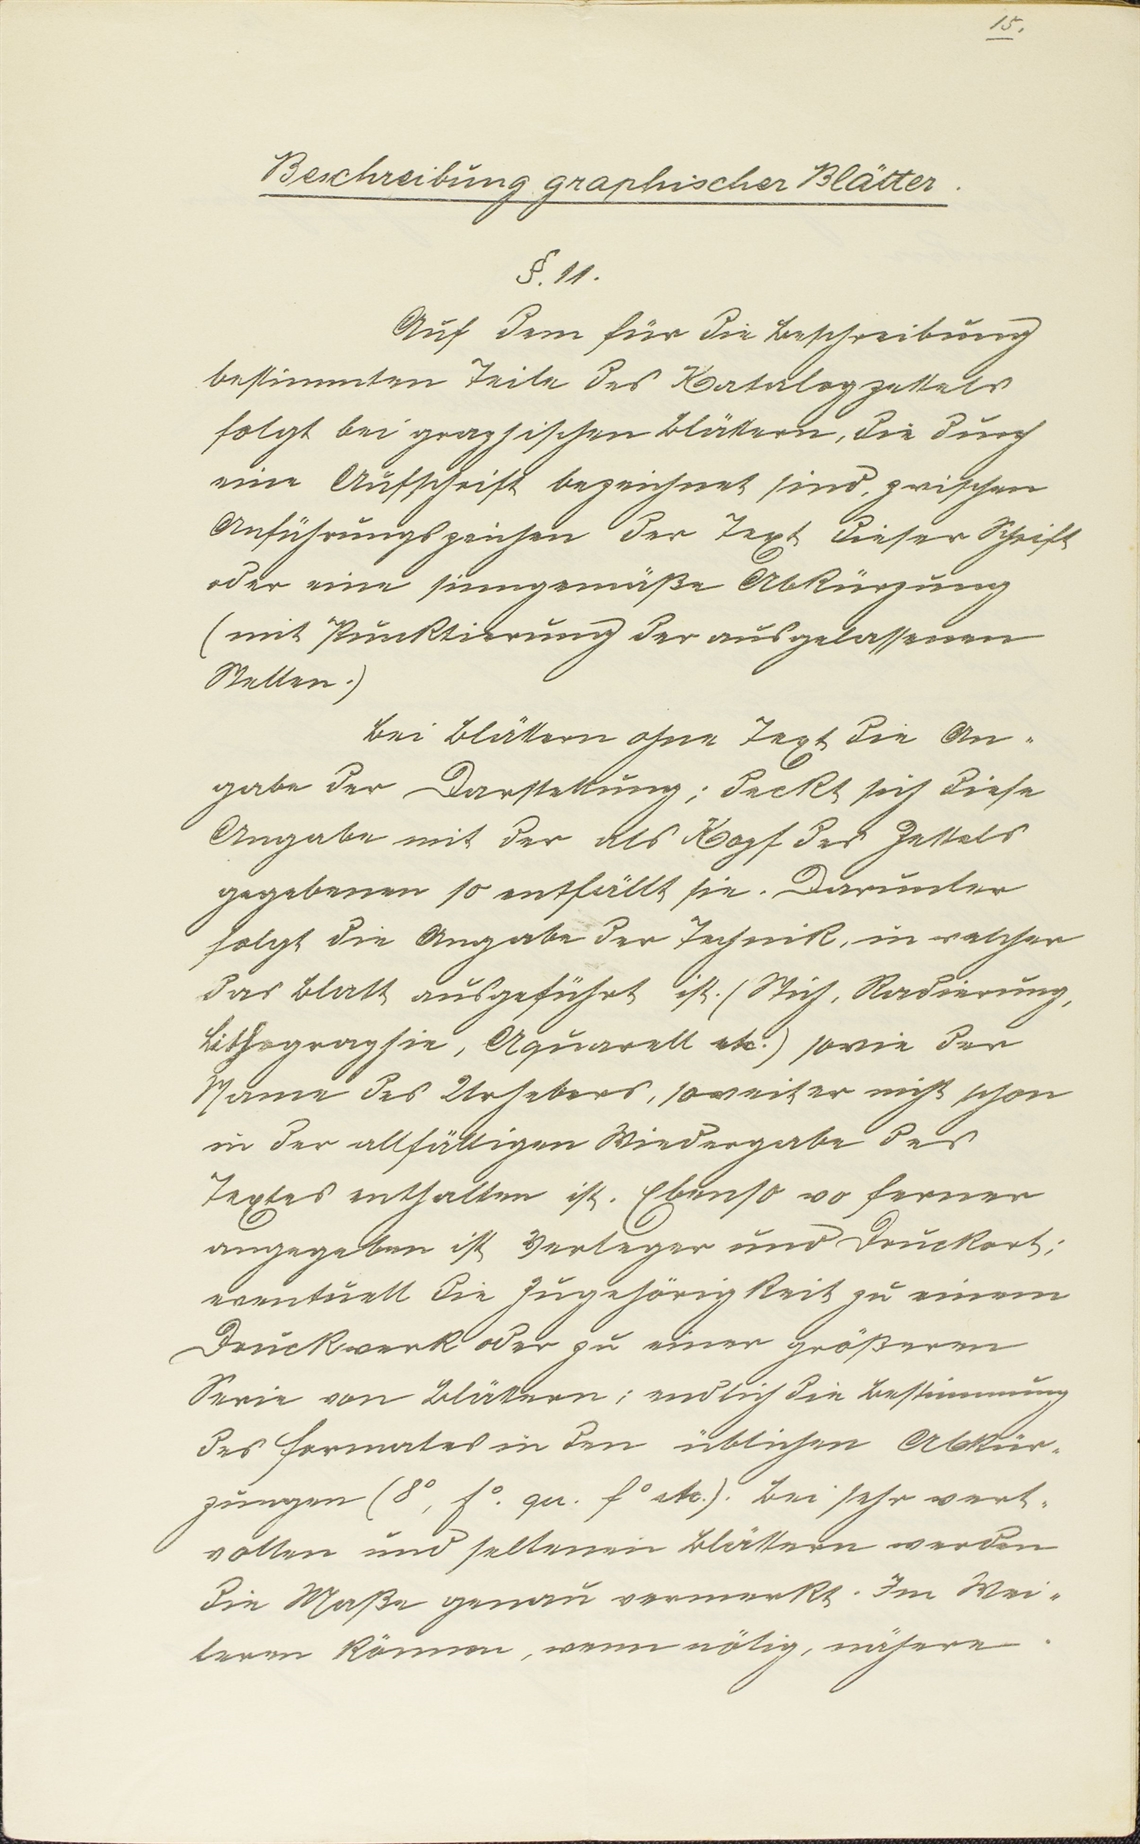 15.
Beschreibung graphischer Blätter.
§. 11.
Auf dem für die Beschreibung
bestimmten Teile des Katalogzettels
folgt bei graphischen Blättern, die durch
eine Aufschrift bezeichnet sind, zwischen
Anführungszeichen der Text dieser Schrift
oder eine sinngemäße Abkürzung
(mit Punktierung der ausgelassenen
Stellen.)
Bei Blättern ohne Text die An-
gabe der Darstellung; deckt sich diese
Angabe mit der als Kopf des Zettels
gegebenen so entfällt sie. Darunter
folgt die Angabe der Technik, in welcher
das Blatt ausgeführt ist. (Stich, Radierung,
Lithographie, Aquarell etc.) sowie der
Name des Urhebers, soweit er nicht schon
in der allfälligen Wiedergabe des
Textes enthalten ist. Ebenso wo ferner
angegeben ist Verleger und Druckort;
eventuell die Zugehörigkeit zu einem
Druckwerk oder zu einer größeren
Serie von Blättern; endlich die Bestimmung
des Formates in den üblichen Abkür-
zungen (8°, f°. qu. f° etc.). Bei sehr wert-
vollen und seltenen Blättern werden
die Maße genau vermerkt. Im Wei-
teren können, wenn nötig, nähere